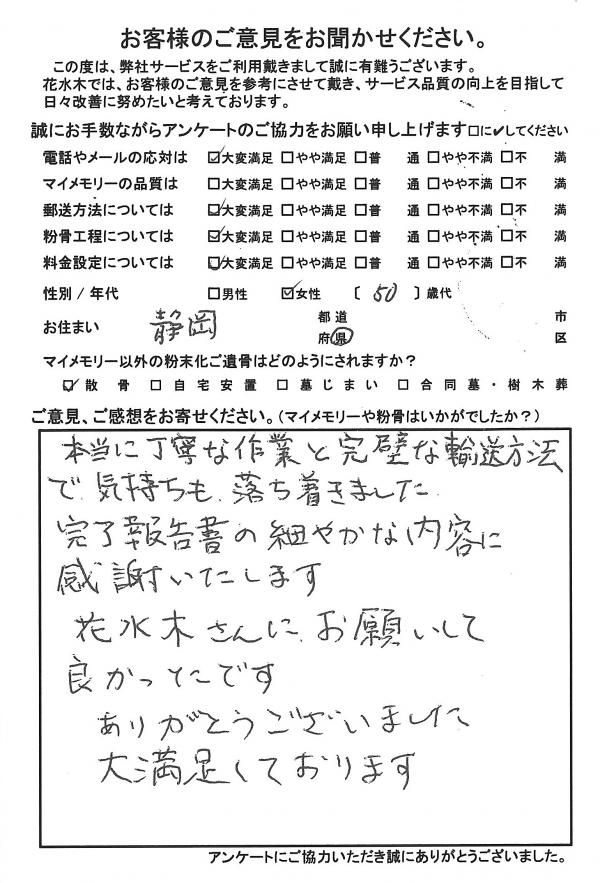 お客様のご意見をお聞かせください。
この度は、弊社サービスをご利用戴きまして誠に有難うございます。
花水木では、お客様のご意見を参考にさせて戴き、サービス品質の向上を目指して
日々改善に努めたいと考えております。
誠にお手数ながらアンケートのご協力をお願い申し上げます□に✔してください
電話やメールの応対は ☑大変満足 □やや満足 □普 通 □やや不満 □不 満
マイメモリーの品質は □大変満足 □やや満足 □普 通 □やや不満 □不 満
郵送方法については ☑大変満足 □やや満足 □普 通 □やや不満 □不 満
粉骨工程については ☑大変満足 □やや満足 □普 通 □やや不満 □不 満
料金設定については ☑大変満足 □やや満足 □普 通 □やや不満 □不 満
性別 / 年代 □男性 ☑女性 〔 50 〕歳代
お住まい 静岡 都 道 府 県 市 区
マイメモリー以外の粉末化ご遺骨はどのようにされますか？
☑散骨 □自宅安置 □墓じまい □合同墓・樹木葬
ご意見、ご感想をお寄せください。(マイメモリーや粉骨はいかがでしたか？)
本当に丁寧な作業と完璧な輸送方法
で気持ちも、落ち着きました
完了報告書の細やかな内容に
感謝いたします
花水木さんに、お願いして
良かったです
ありがとうございました
大満足しております
アンケートにご協力いただき誠にありがとうございました。